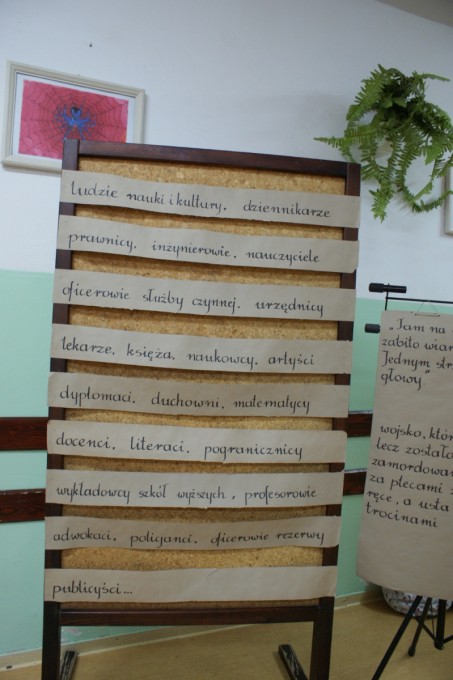 ludzie nauki i kultury, dziennikarze
prawnicy, inżynierowie, nauczyciele
oficerowie służby czynnej, urzędnicy
lekarze, księża, naukowcy, artyści
dyplomaci, duchowni, matematycy
docenci, literaci, pogranicznicy
wykładowcy szkół wyższych, profesorowie
adwokaci, policjanci, oficerowie rezerwy
publicyści...
„Tam na
zabito wiar
Jednym str
głowy"
wojsko, któr
lecz została
zamordowan
za plecami z
ręce, a usta
trocinami